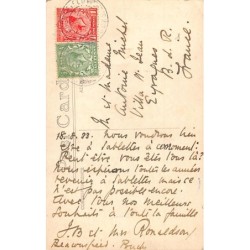 Card
M et Madame
Antoine Michel
Villa St Jean
Eyragues
B. d. R.
France
18.8.33. Nous voudrions bien
être à Sablettes à ce moment
Peut être vous êtes tous là?
Nous espérons toutes les années
revenir à Sablettes mais ce
n'est pas possible encore.
Avec tous nos meilleurs
souhaits à toute la famille
J.B et Mrs Ronaldson
Beaconsfield - Bucks